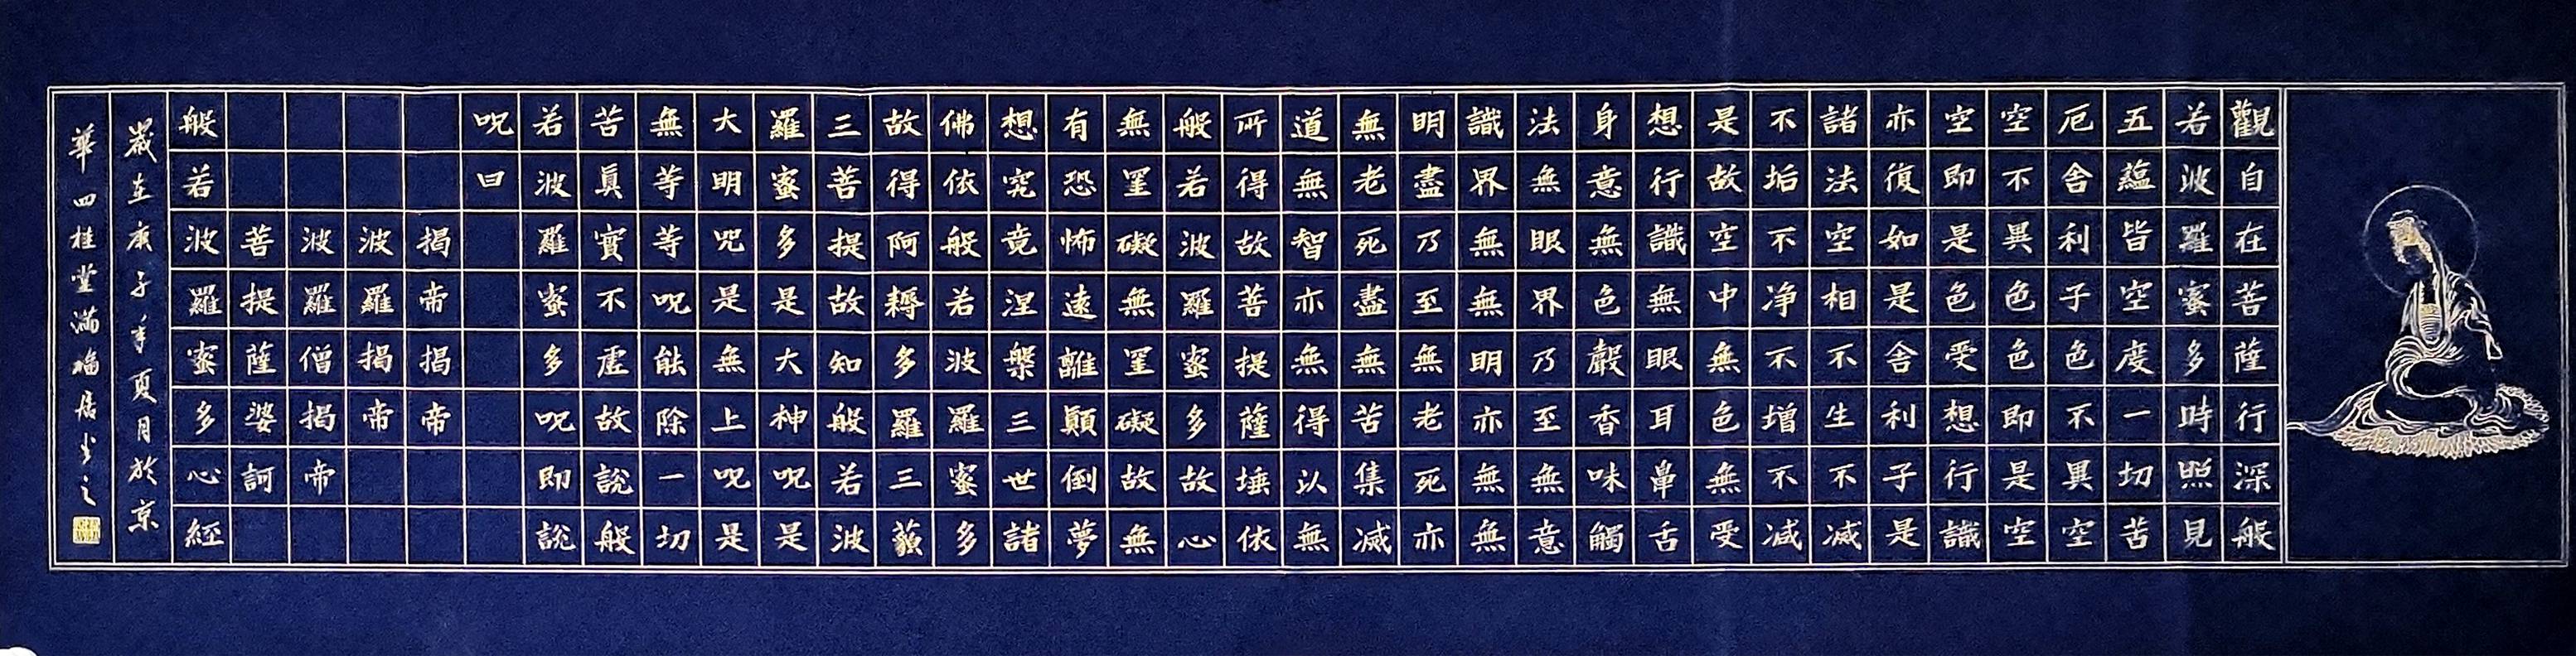 觀自在菩薩行深般
若波羅蜜多時照見
五蘊皆空度一切苦
厄舍利子色不異空
空不異色色即是空
空即是色受想行識
亦復如是舍利子是
諸法空相不生不滅
不垢不净不增不减
是故空中無色無受
想行識無眼耳鼻舌
身意無色聲香味觸
法無眼界乃至無意
識界無無明亦無無
明盡乃至無老死亦
無老死盡無苦集滅
道無智亦無得以無
所得故菩提薩埵依
般若波羅蜜多故心
無罣礙無罣礙故無
有恐怖遠離顛倒夢
想究竟涅槃三世諸
佛依般若波羅蜜多
故得阿耨多羅三藐
三菩提故知般若波
羅蜜多是大神咒是
大明咒是無上咒是
無等等咒能除一切
苦真實不虛故說般
若波羅蜜多咒即說
咒曰
揭帝揭帝
波羅揭帝
波羅僧揭帝
菩提薩婆訶
般若波羅蜜多心經
歲在庚子年夏月於京
華四桂堂滿福居書之